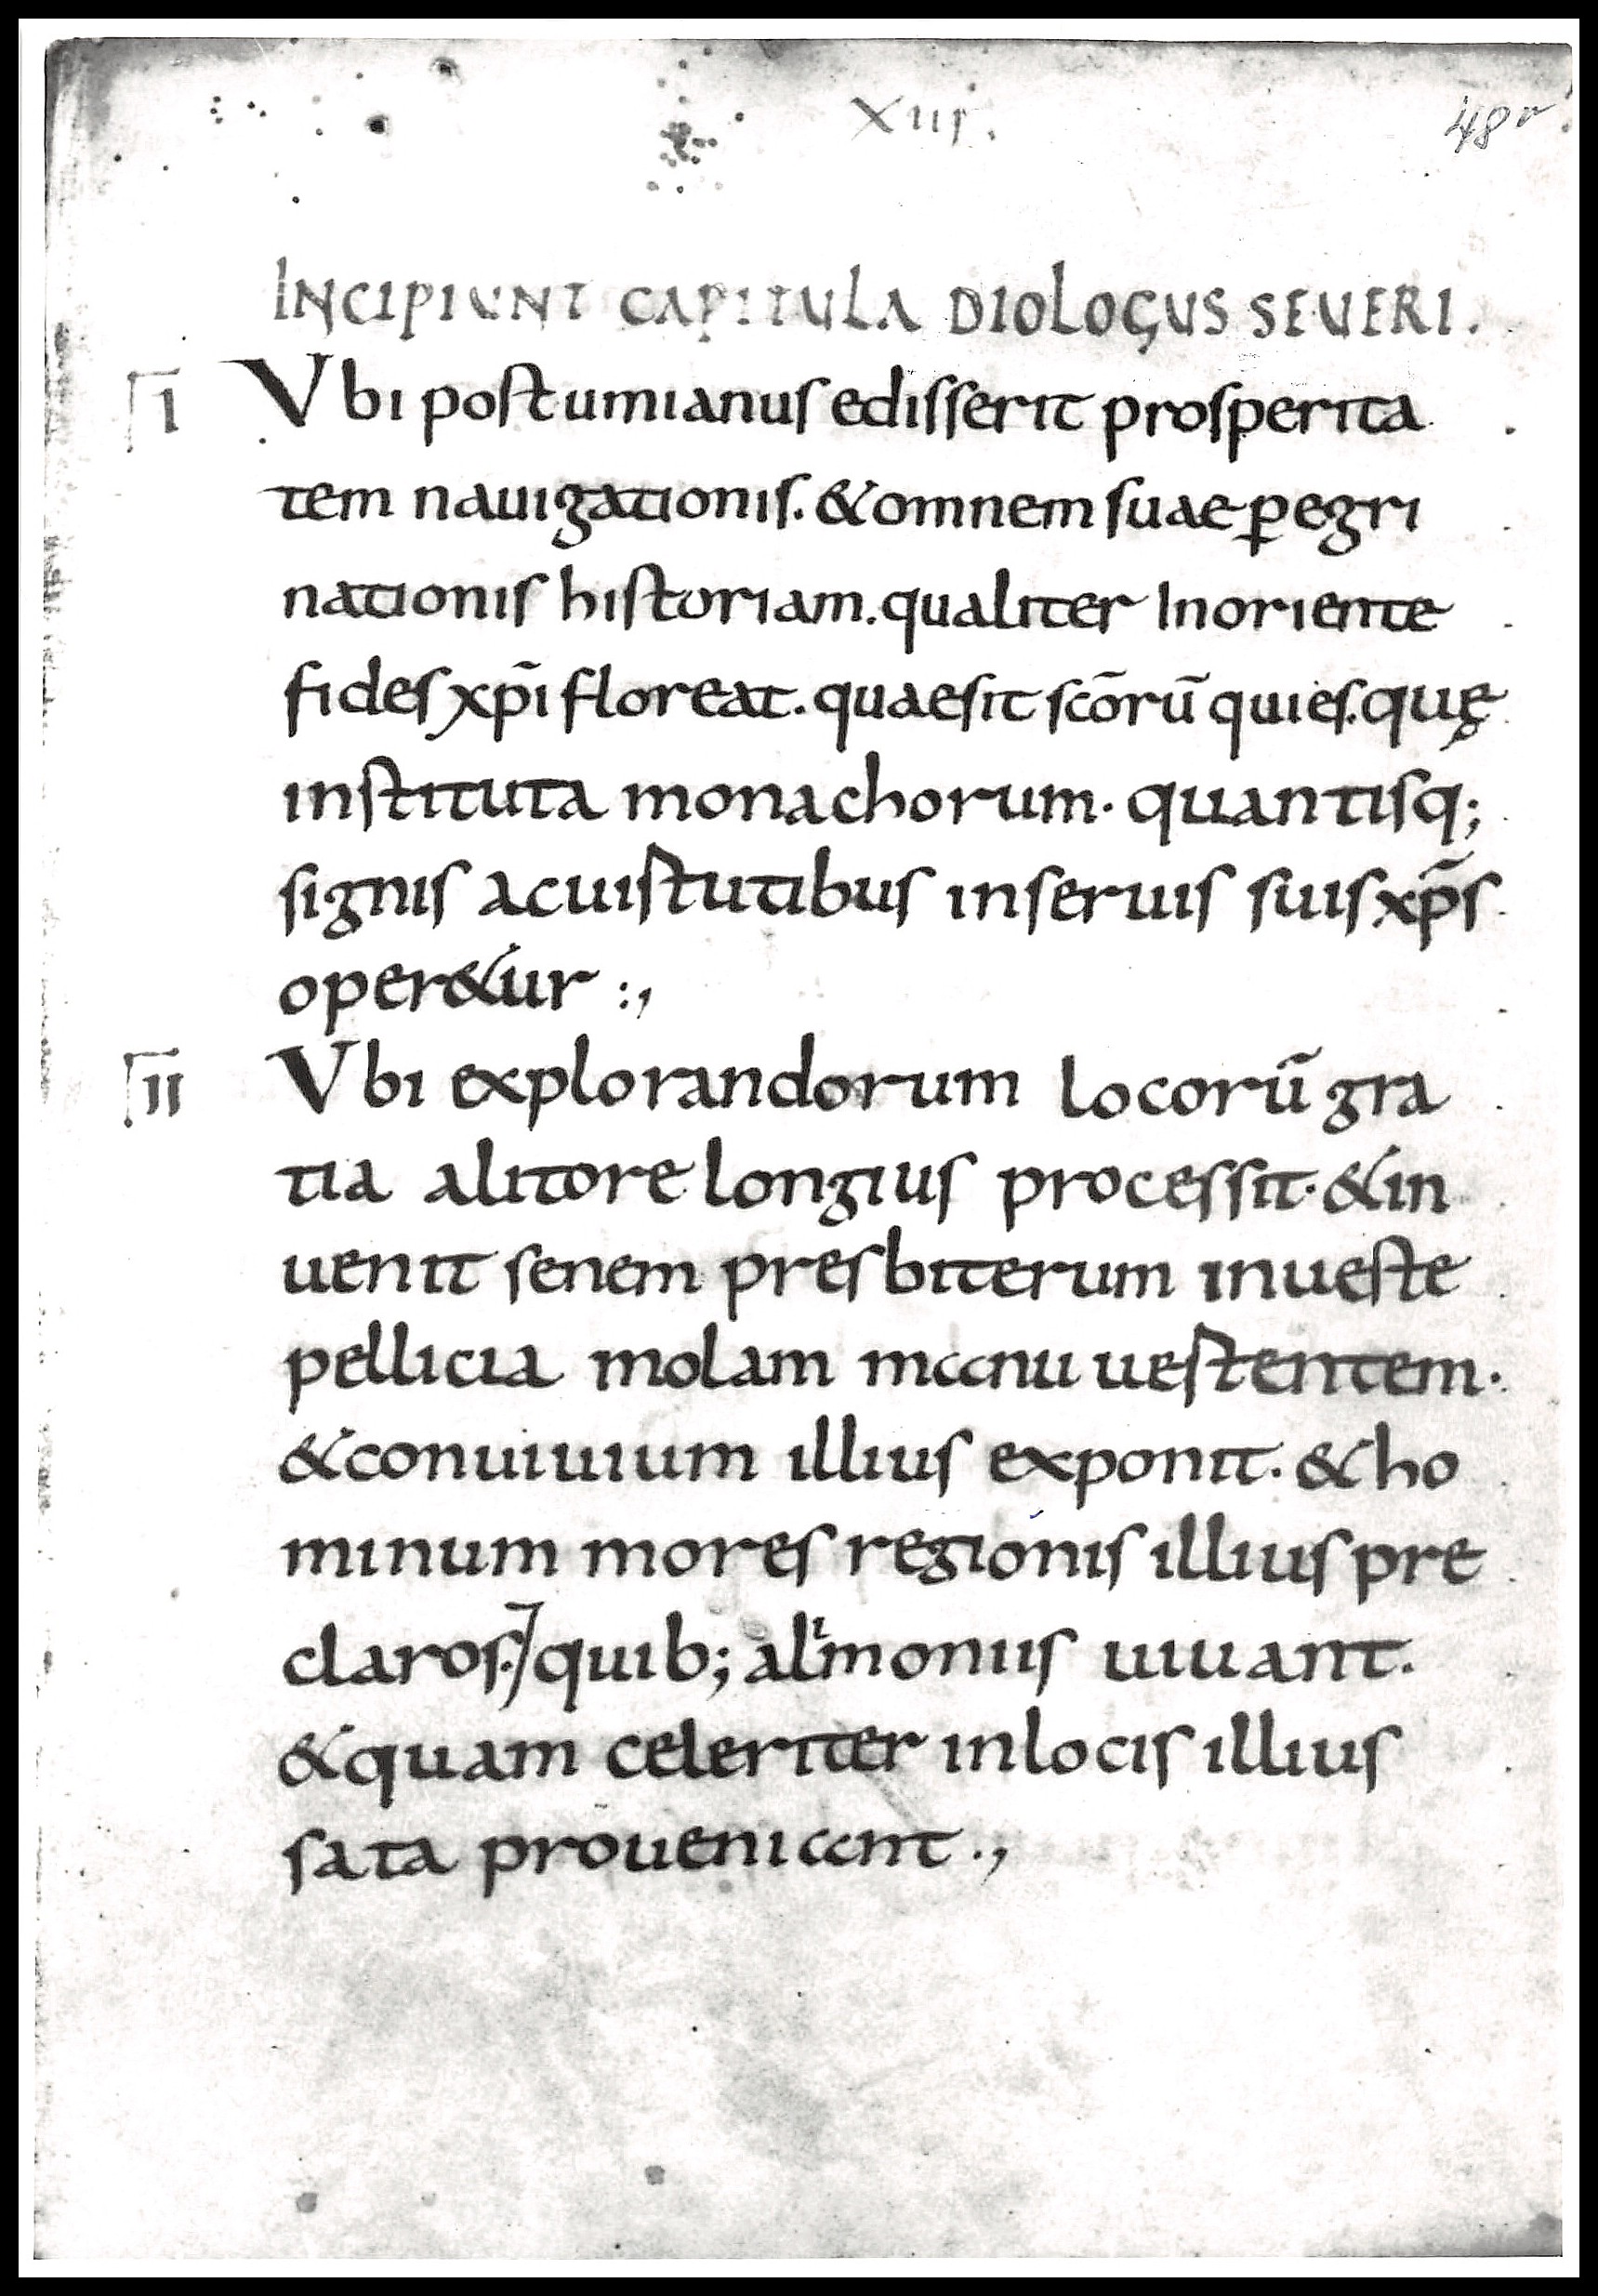 XIII.
48r
INCIPIUNT CAPITULA DIOLOGUS SEUERI.
I Vbi postumianus edisserit prosperita
tem nauigationis. &omnem suae ꝑegri
nationis historiam. qualiter Inoriente
fides xp̄i floreat. quaesit scōrū quies. quę
instituta monachorum· quantisq;
signis acuistutibus inseruis suis xp̄s
oper&ur :,
II Vbi explorandorum locorū gra
tia alitore longius processit· &in
uenit senem presbiterum inueste
pellicia molam manu uestentem·
&conuiuium illius exponit· &ho
minum mores regionis illius pre
claros./ quib; alimoniis uiuant.
&quam celeriter inlocis illius
sata proueniant .,